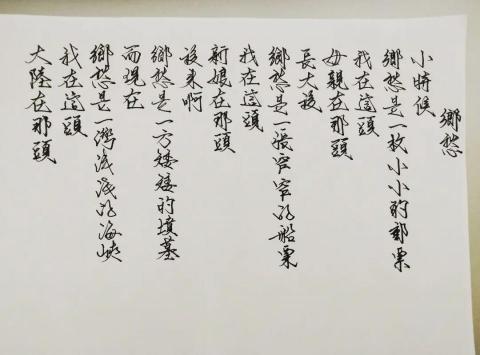 鄉愁
小時候
鄉愁是一枚小小的郵票
我在這頭
母親在那頭
長大後
鄉愁是一張窄窄的船票
我在這頭
新娘在那頭
後來啊
鄉愁是一方矮矮的墳墓
而現在
鄉愁是一灣淺淺的海峽
我在這頭
大陸在那頭